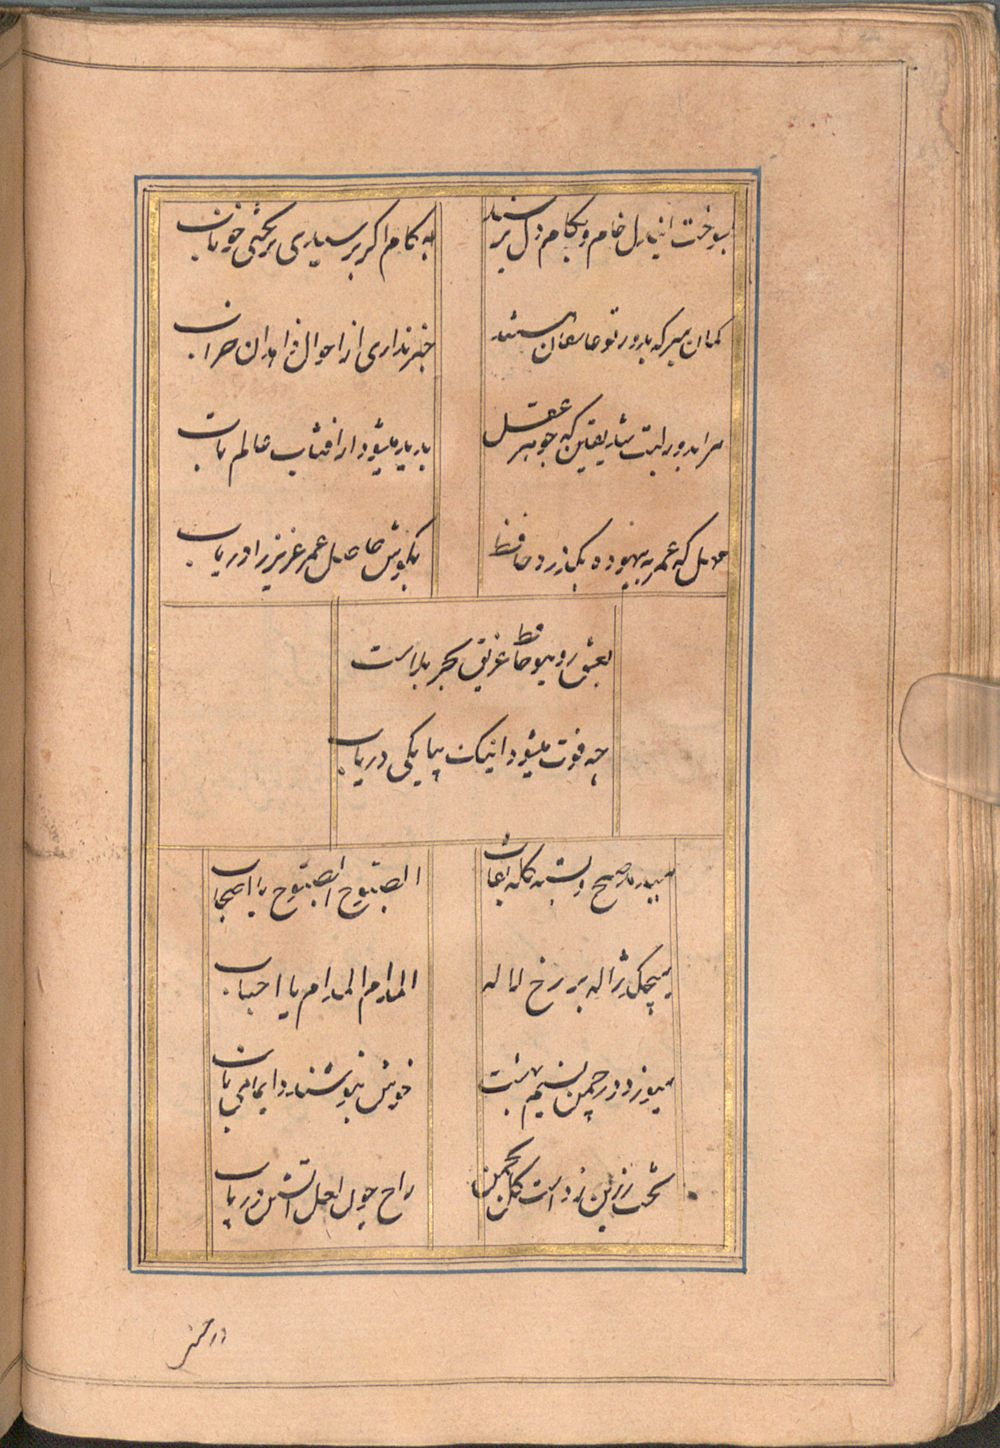 بسوخت این دل خام و بکام دل نرسید به کام اگر برسیدی نریختی خوناب
گمان مبر که بدور تو عاشقان مستند خبر نداری از احوال زاهدان خراب
مرا بدور لبت شد یقین که جوهر عقل پدید میشود از افتاب عالم تاب
مهل که عمر به بیهوده بگذرد حافظ بکوش حاصل عمر عزیز را دریاب
بعشق روی تو حافظ غریق بحر بلاست
چه فوت میشود اینک بیا یکی دریاب
میدمد صبح و بسته کله نقاب الصبوح الصبوح یا اصحاب
میچکد ژاله بر رخ لاله المدام المدام یا احباب
میوزد در چمن نسیم بهشت خوش بنوشید دایما می ناب
تخت زرین زد است گل بچمن راح چون لعل اتشین دریاب